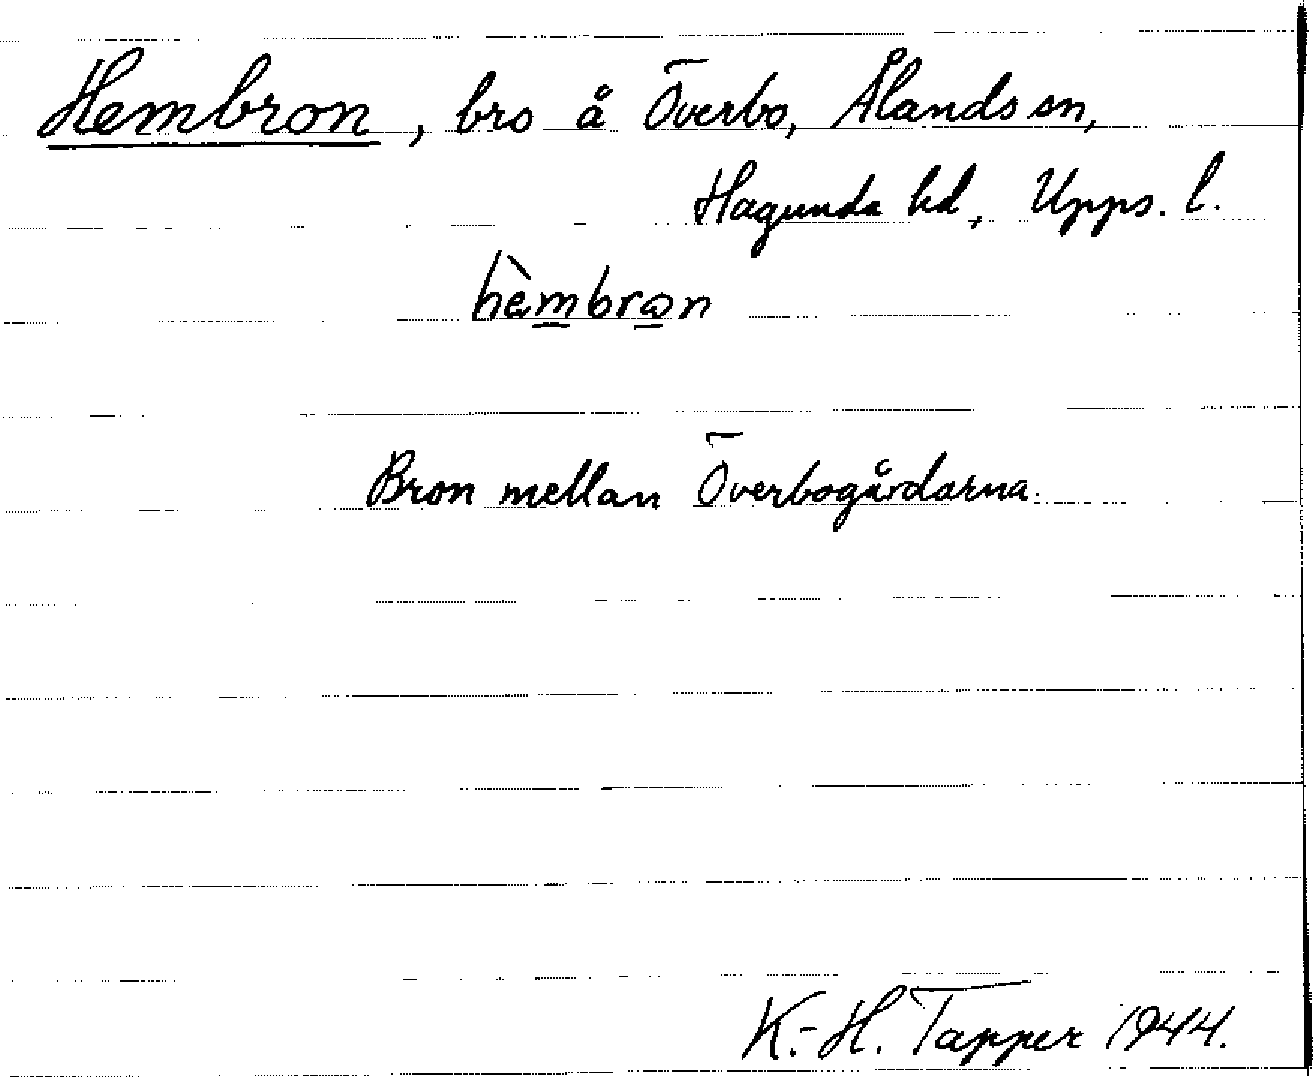 Hembron, bro å Överbo, Ålands sn,
Hagunda hd, Upps. l.
hèmbron
Bron mellan Överbogårdarna.
K.-H. Tapper 1944.